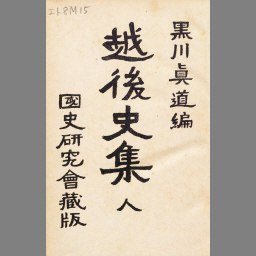 218M15
黒川眞道編
越後史集 人
國史研究會藏版